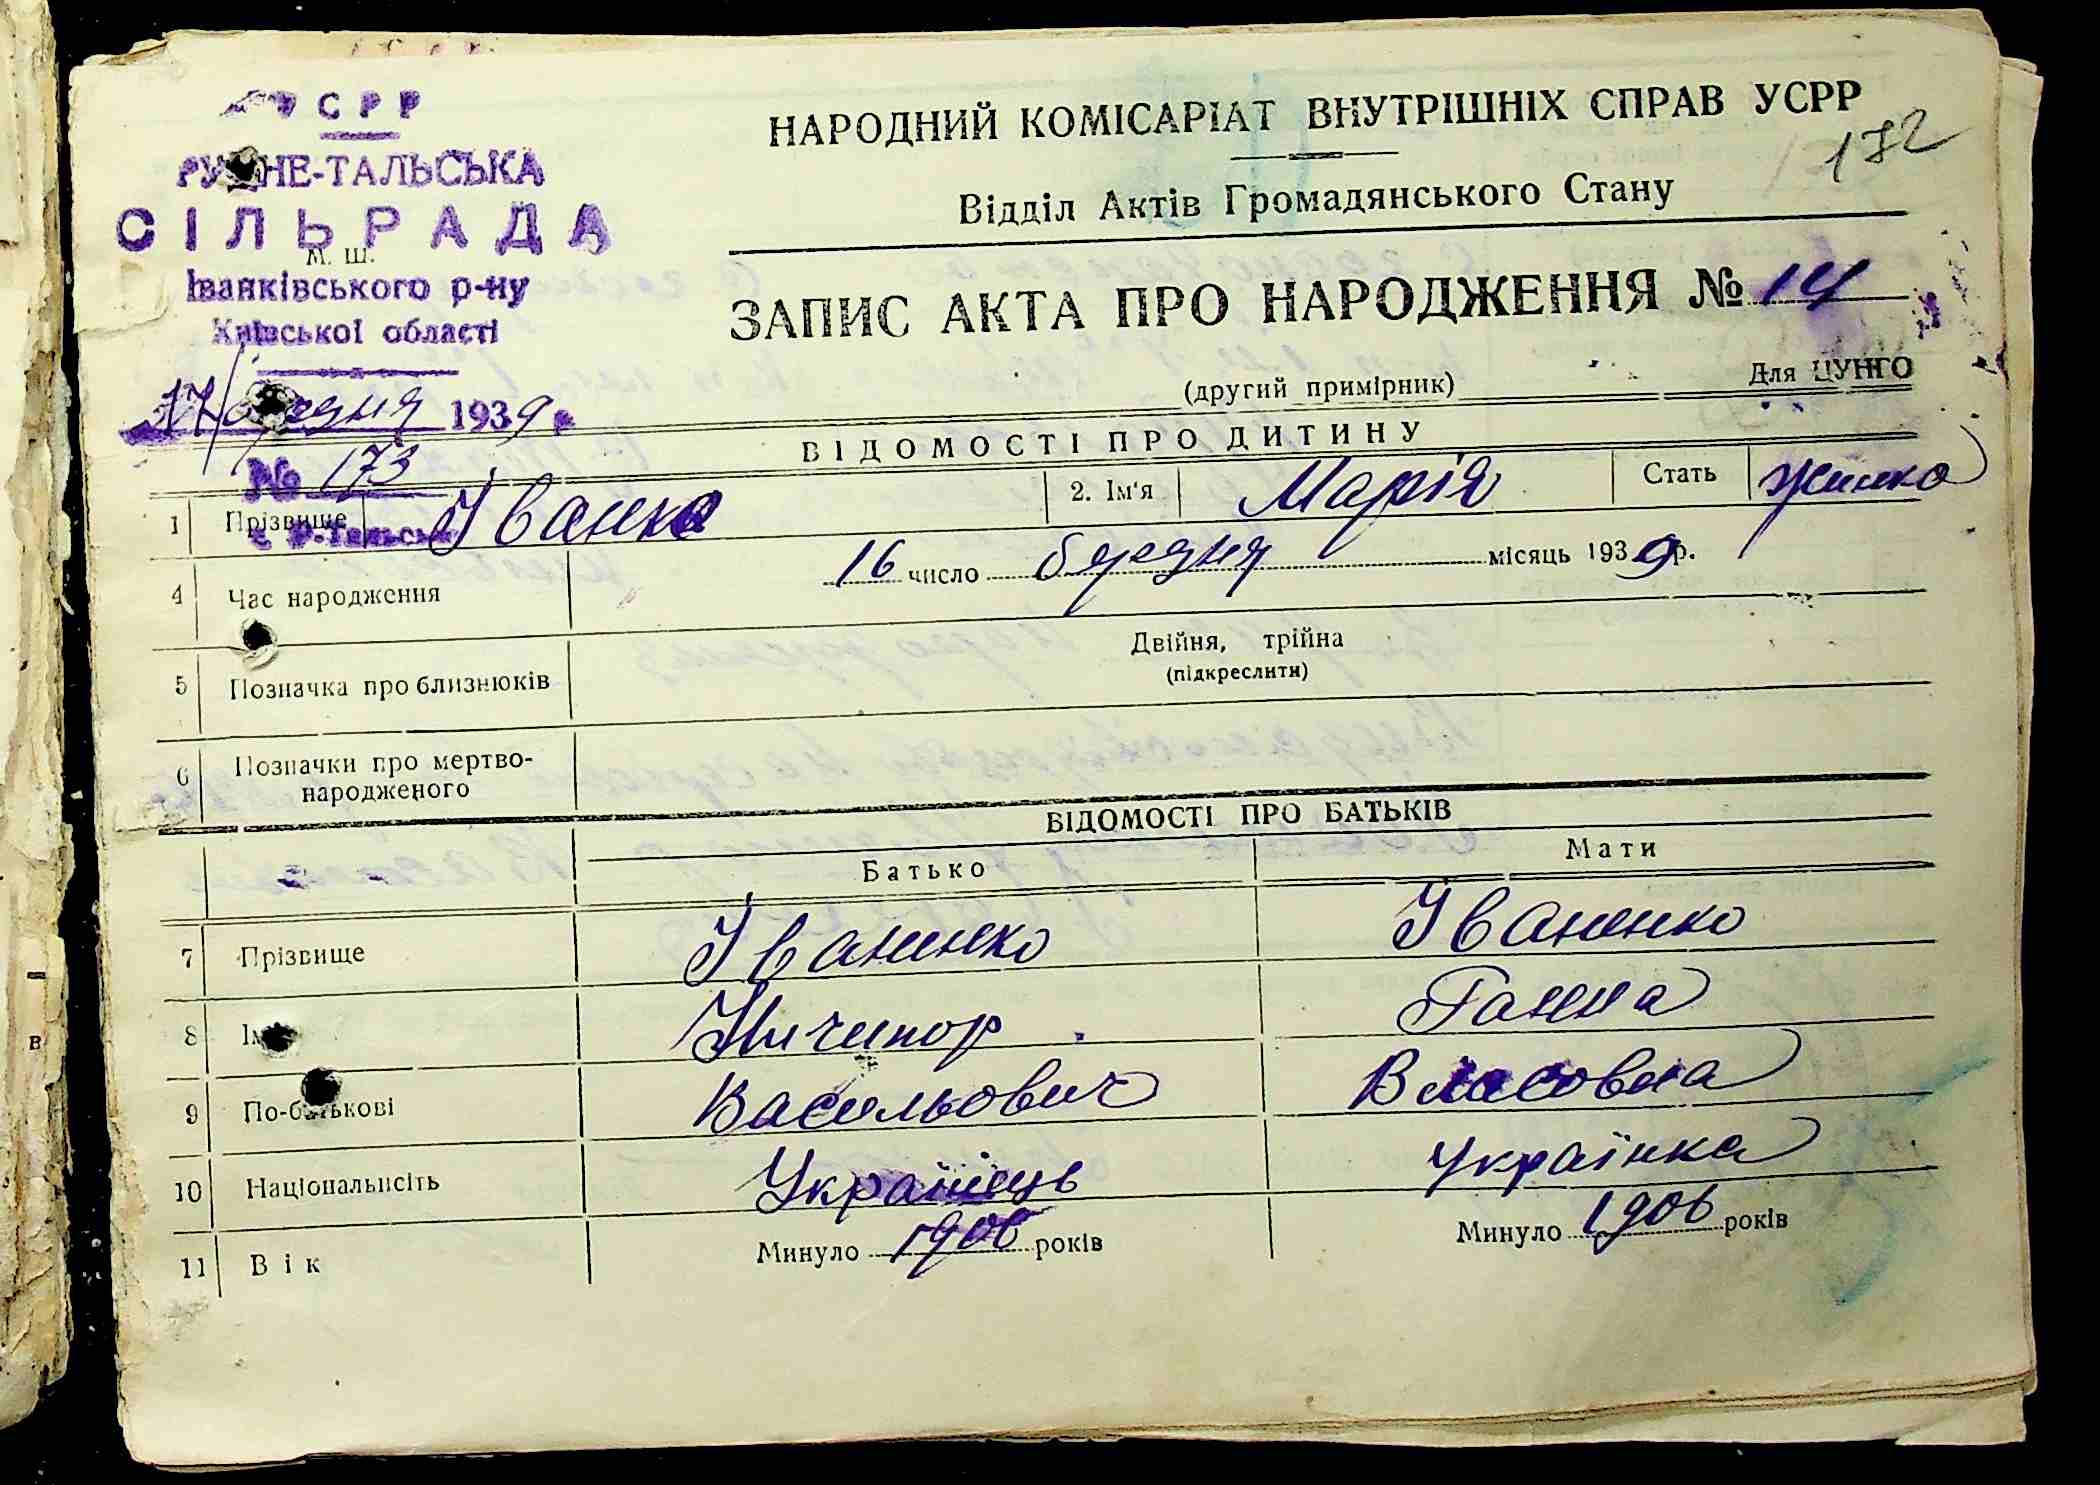 УСРР
РУДНЕ-ТАЛЬСЬКА
СІЛЬРАДА
М. Ш.
Іванківського р-ну
Київської області
17/березня 1939 р.
№ 173
с. Р-Тальськ
НАРОДНИЙ КОМІСАРІАТ ВНУТРІШНІХ СПРАВ УСРР
172
Відділ Актів Громадянського Стану
ЗАПИС АКТА ПРО НАРОДЖЕННЯ № 14
(другий примірник) Для ЦУНГО
ВІДОМОСТІ ПРО ДИТИНУ
1 Прізвище Іванко 2. Ім'я Марія Стать Жинка
4 Час народження 16 число березня місяць 1939 р.
5 Позначка про близнюків Двійня, трійна
(підкреслити)
6 Позначки про мертво-
народженого
ВІДОМОСТІ ПРО БАТЬКІВ
Батько Мати
7 Прізвище Іваненко Іваненко
8 Ім'я Ничипор Ганна
9 По-батькові Васильович Власовна
10 Національність Українець Українка
11 Вік Минуло 1906 років Минуло 1906 років